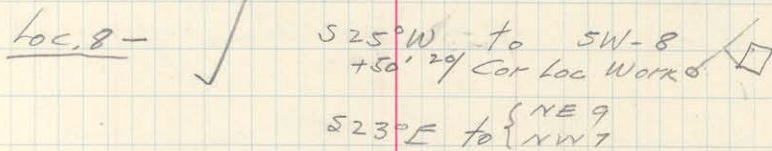 Loc. 8 - S25°W to SW-8
+50' 20/ Cor Loc Work
S23°E to { NE 9
NW 7